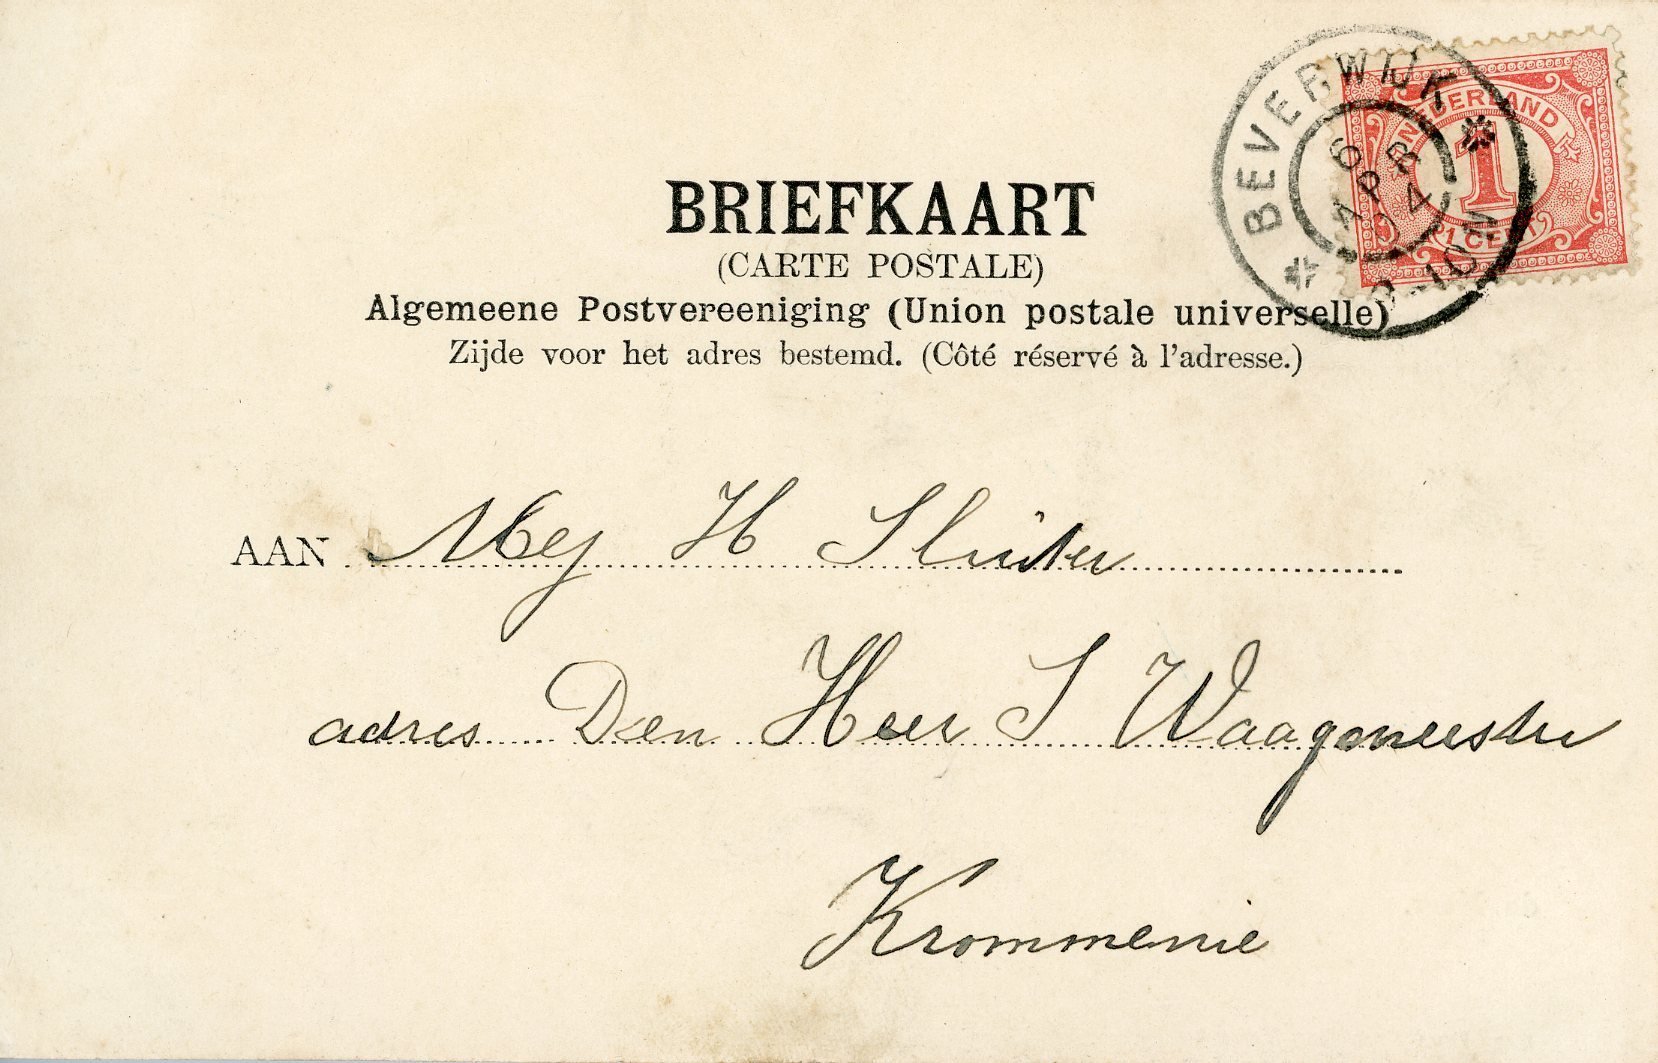 BEVERWIJK
6 APR 04
NEDERLAND
1
1 CENT
BRIEFKAART
(CARTE POSTALE)
Algemeene Postvereeniging (Union postale universelle)
Zijde voor het adres bestemd. (Côté réservé à l'adresse.)
AAN Mej H Sluiter
adres Den Heer S Waagemeester
Krommenie